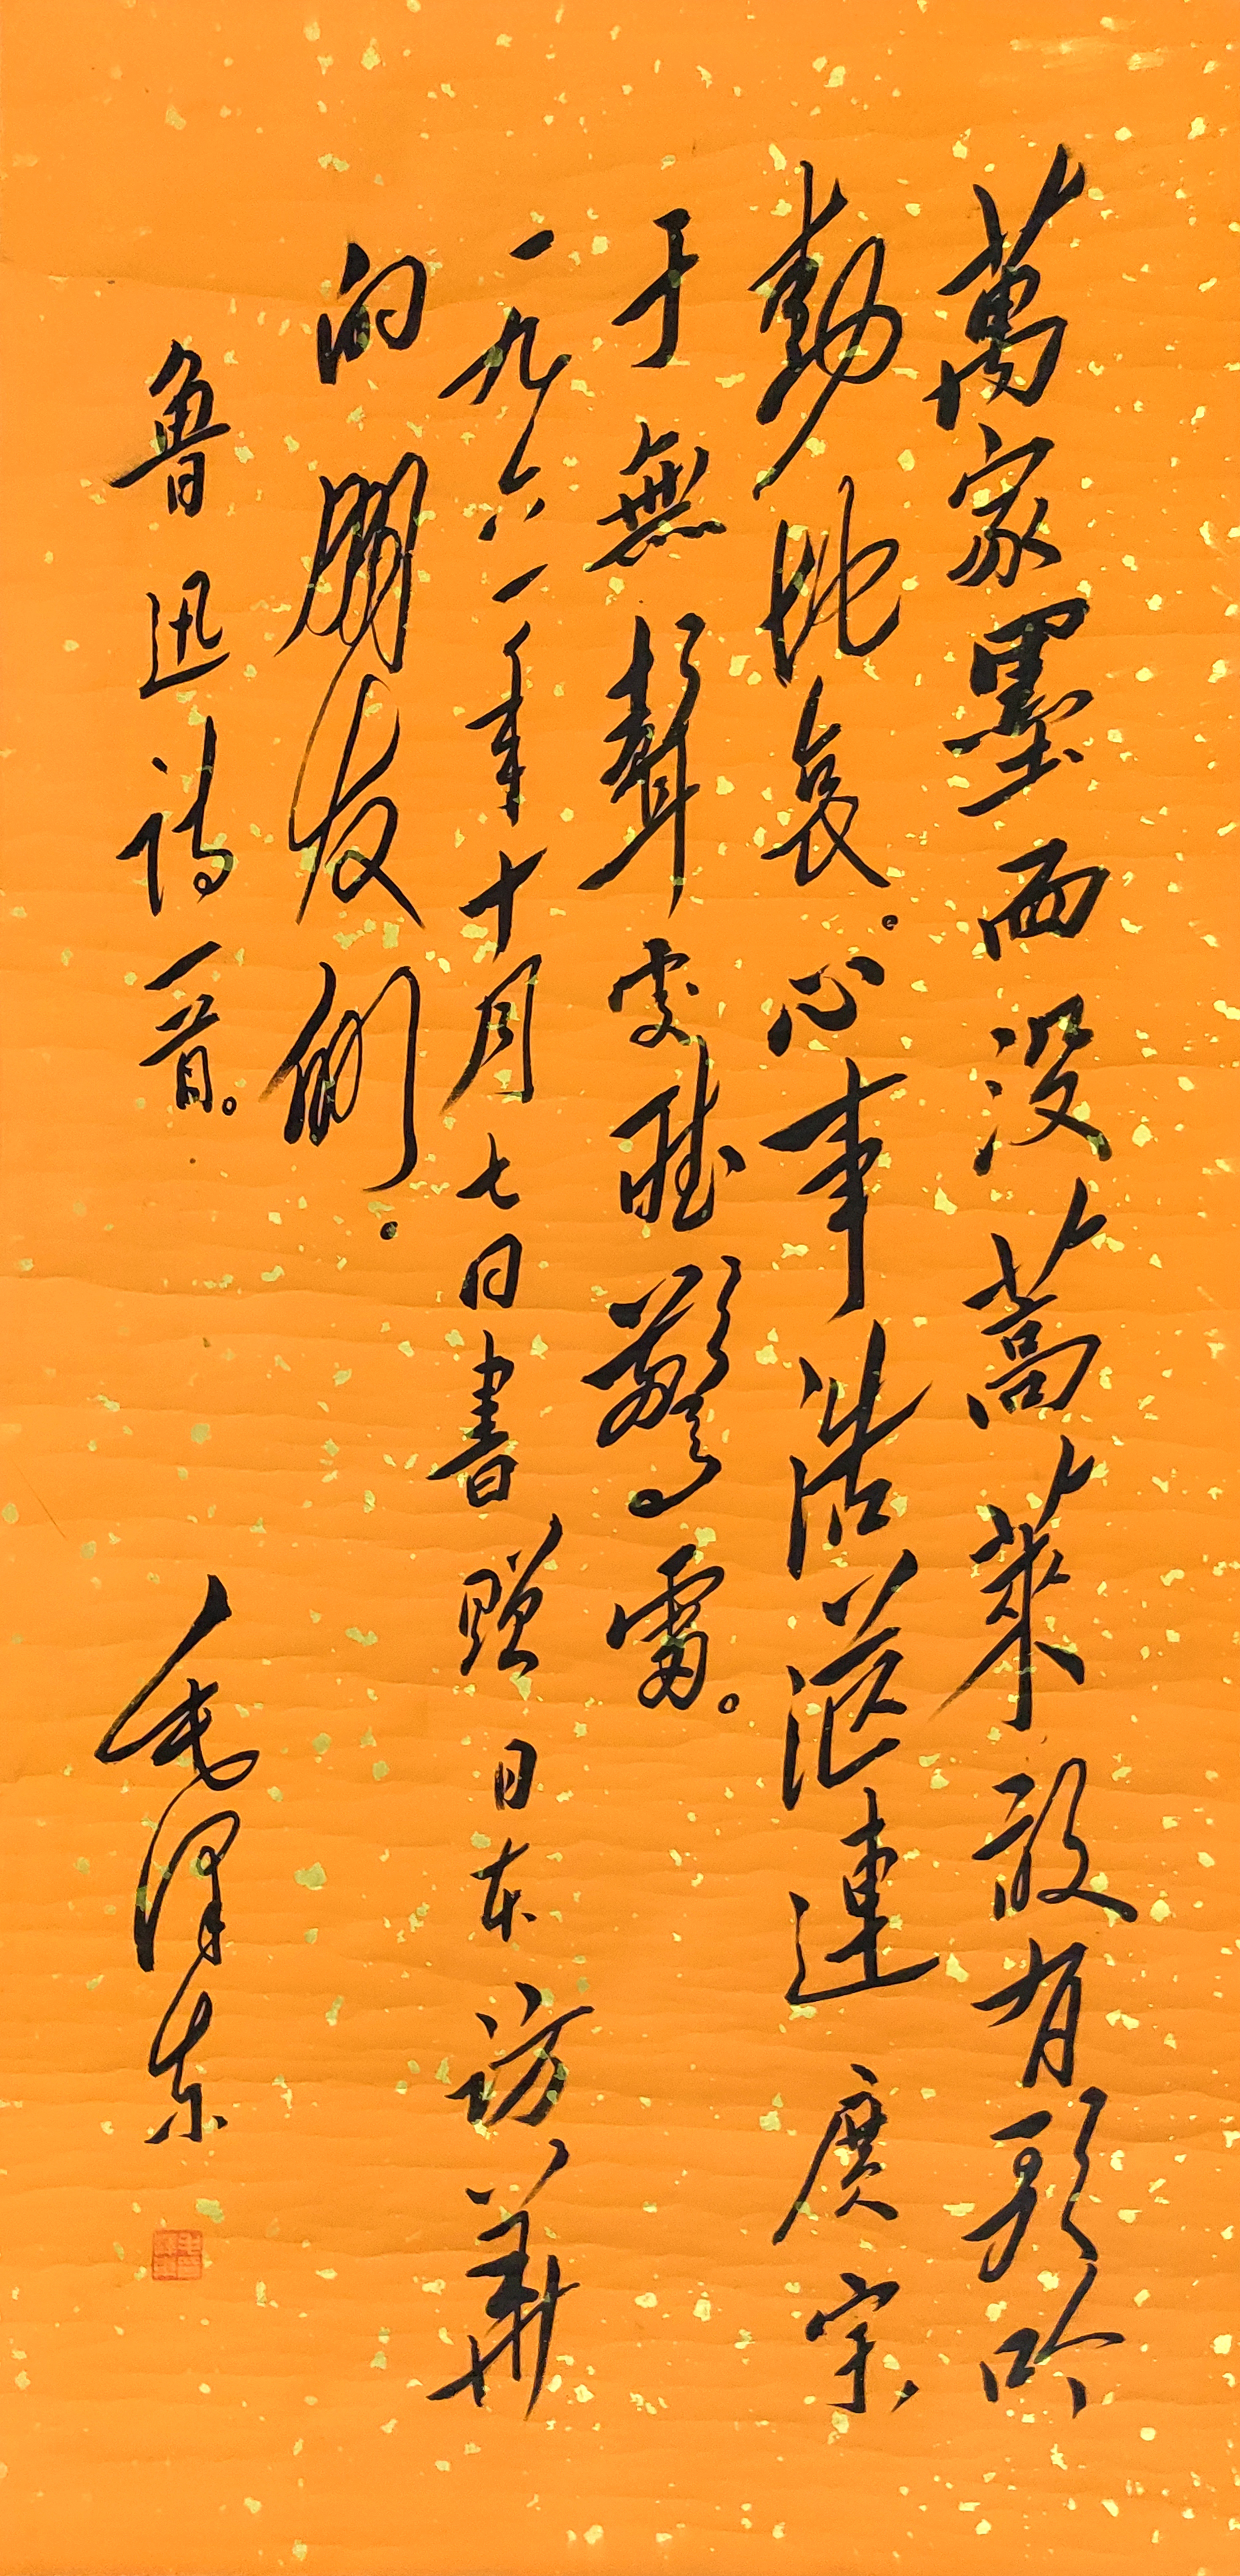 萬家墨面没蒿萊敢有歌吟
動地哀。心事浩茫連廣宇、
于無聲處聽驚雷。
一九六一年十月七日書贈日本訪華
的朋友們。
魯迅詩一首。
毛澤東